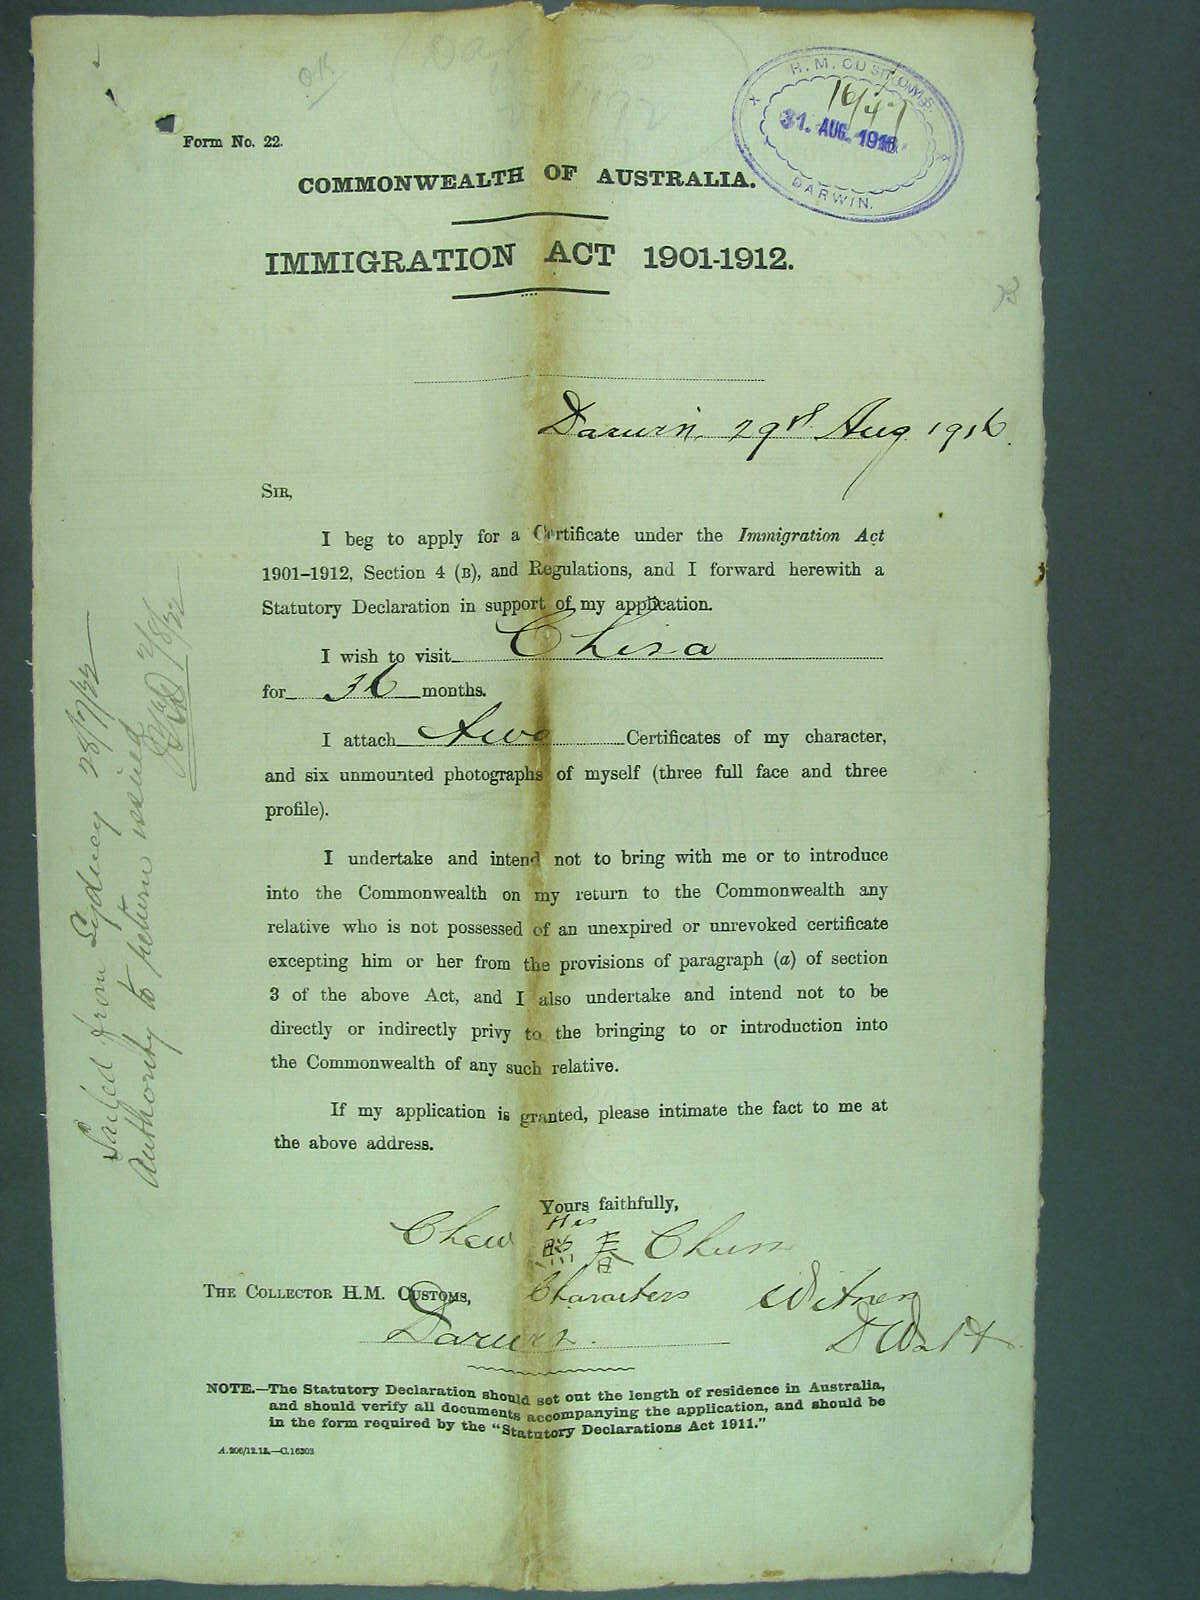 OK
Form No. 22.
H. M. CUSTOMS
16/47
31. AUG. 1916
DARWIN.
COMMONWEALTH OF AUSTRALIA.
IMMIGRATION ACT 1901-1912.
Darwin 29th Aug 1916.
SIR,
I beg to apply for a Certificate under the Immigration Act
1901–1912, Section 4 (B), and Regulations, and I forward herewith a
Statutory Declaration in support of my application.
I wish to visit China
for 36 months.
I attach two Certificates of my character,
and six unmounted photographs of myself (three full face and three
profile).
I undertake and intend not to bring with me or to introduce
into the Commonwealth on my return to the Commonwealth any
relative who is not possessed of an unexpired or unrevoked certificate
excepting him or her from the provisions of paragraph (a) of section
3 of the above Act, and I also undertake and intend not to be
directly or indirectly privy to the bringing to or introduction into
the Commonwealth of any such relative.
If my application is granted, please intimate the fact to me at
the above address.
Yours faithfully,
His
Chew Chun
Characters Witness
THE COLLECTOR H.M. CUSTOMS,
Darwin.
NOTE.—The Statutory Declaration should set out the length of residence in Australia,
and should verify all documents accompanying the application, and should be
in the form required by the "Statutory Declarations Act 1911."
A.206/12.12.—C.16303
Sailed from Sydney 23/7/32
Authority to return issued